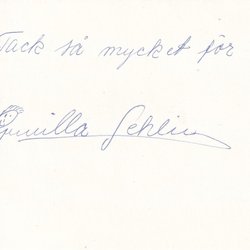 Tack så mycket för
Gunilla Sehlin